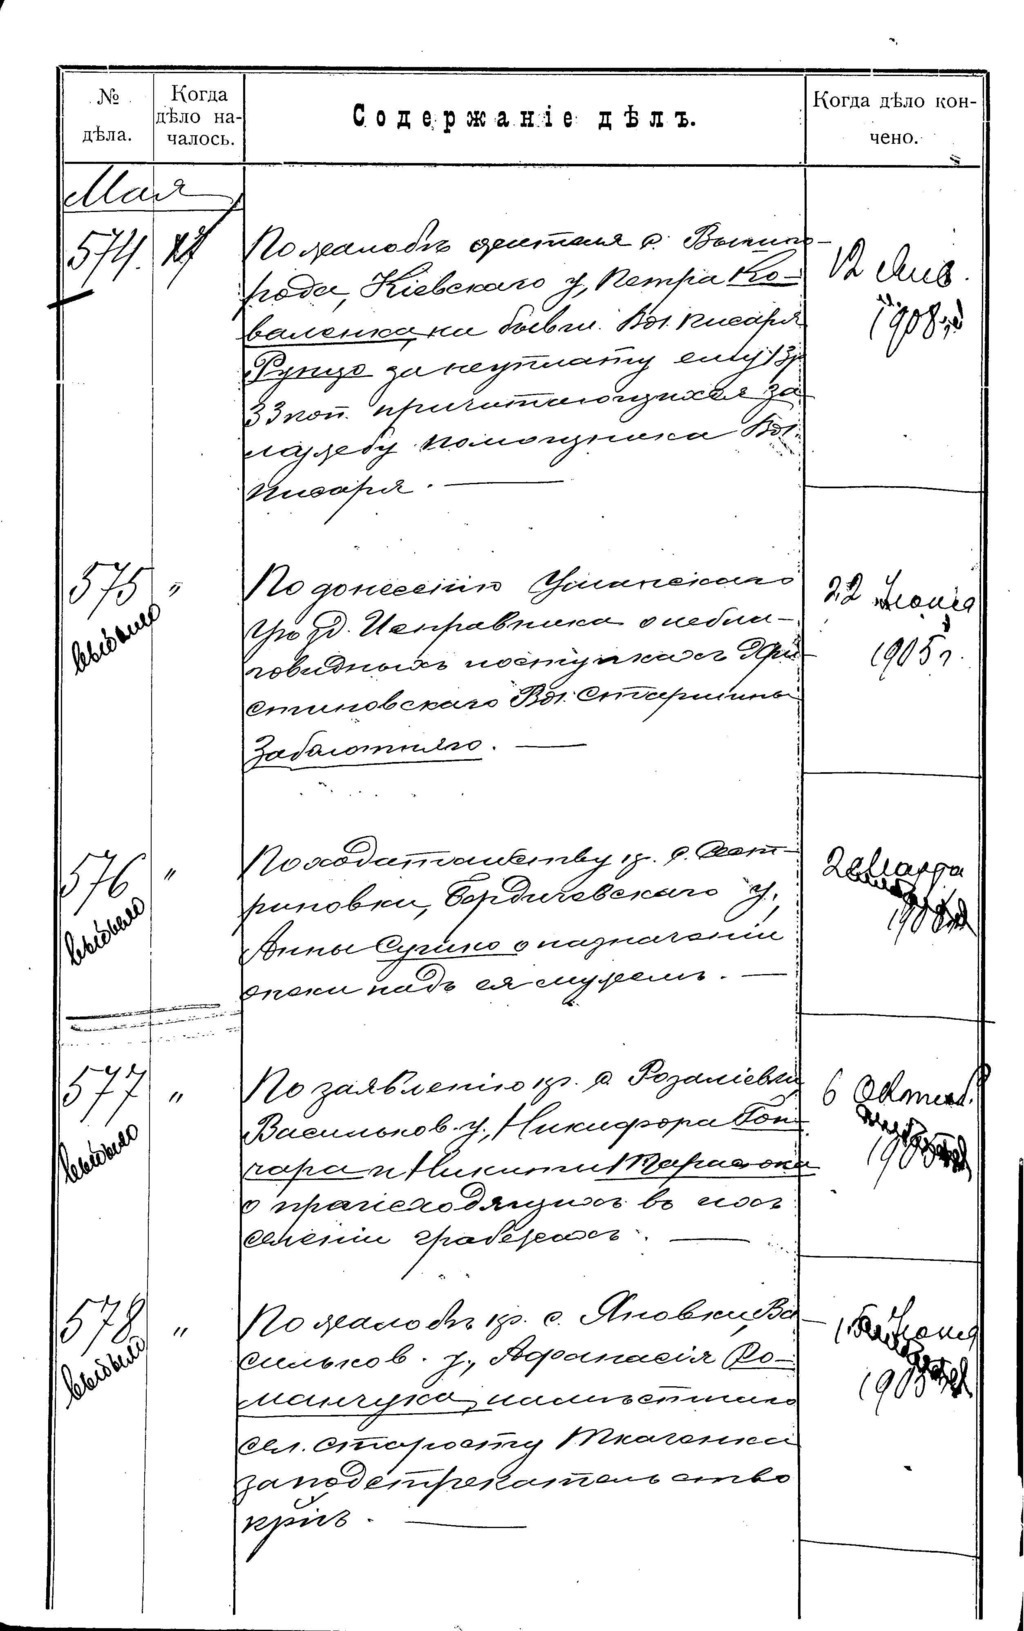 № дѣла.
Когда дѣло началось.
Содержаніе дѣлъ.
Когда дѣло кончено.
Мая
574. 17
По жалобѣ жителя с. Вышго-
рода, Кіевскаго у, Петра Ко-
валенка, на бывш. Вол. писаря
за неуплату ему 13 р
33 коп. причитающихся за
службу помощника Вол.
писаря.
12 Янв.
1908 г.
575 "
выбыло
По донесенію Уманскаго
Уѣзд. Исправника о небла-
говидныхъ поступкахъ Хри-
стиновскаго Вол. Старшины
Заболотняго.
22 Іюня
1905 г.
576 "
выбыло
По ходатайству кр. с.
Бердичевскаго у,
Анны о назначеніи
опеки надъ ея мужемъ.
Марта
577 "
выбыло
По заявленію кр. с. Розаліевки
Васильков. у., Никифора Гон-
чара и Никиты
о происходящихъ въ ихъ
селеніи грабежахъ.
6 Октяб.
1905
578 "
выбыло
По жалобѣ кр. с. Яновки, Ва
сильков. у., Афанасія Ро-
манчука, на мѣстнаго
сел. старосту Ткаченка
за подстрекательство
кр-нъ.
15 Іюня
1905